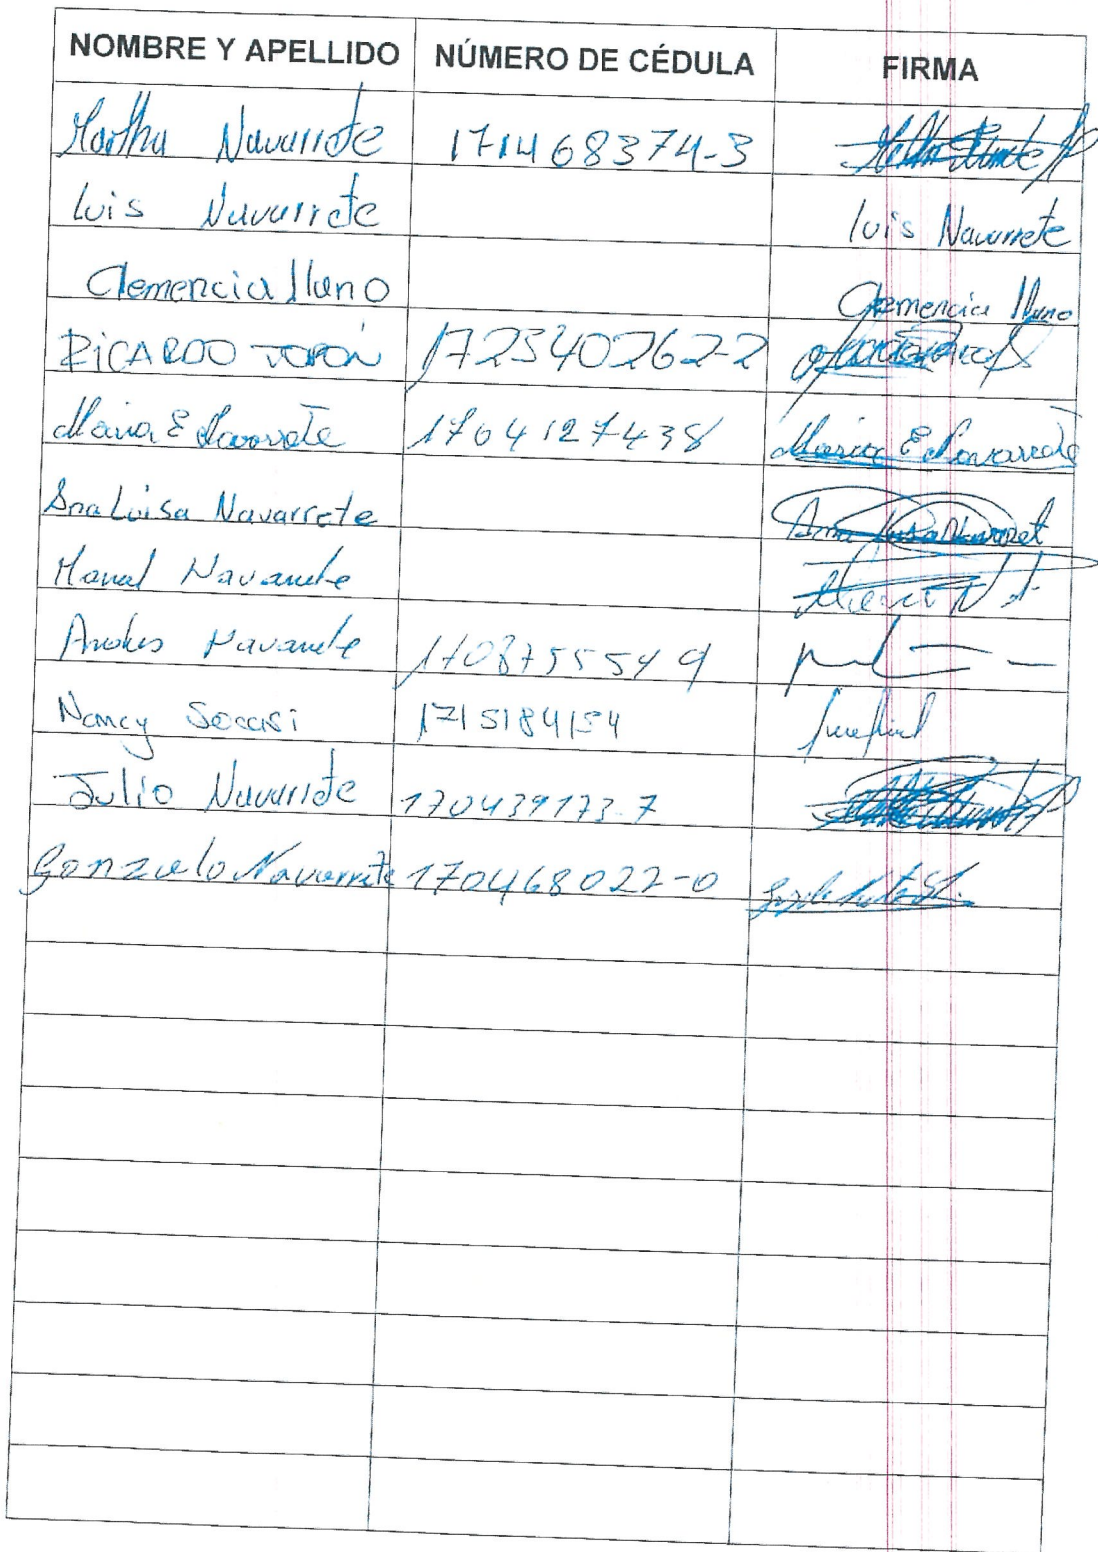 NOMBRE Y APELLIDO NÚMERO DE CÉDULA FIRMA
Martha Navarrete 171468374-3
Luis Navarrete Luis Navarrete
Clemencia Iluno Clemencia Iluno
RICARDO TOPÓN 172340262-2
Maria E Navarrete 1704127438 Maria E Navarrete
Ana Luisa Navarrete Ana Luisa Navarret
Manuel Navarrete
Andres Navarrete 1708755549
Nancy Socasi 1715184154
Julio Navarrete 170439173-7
Gonzalo Navarrete 170468022-0